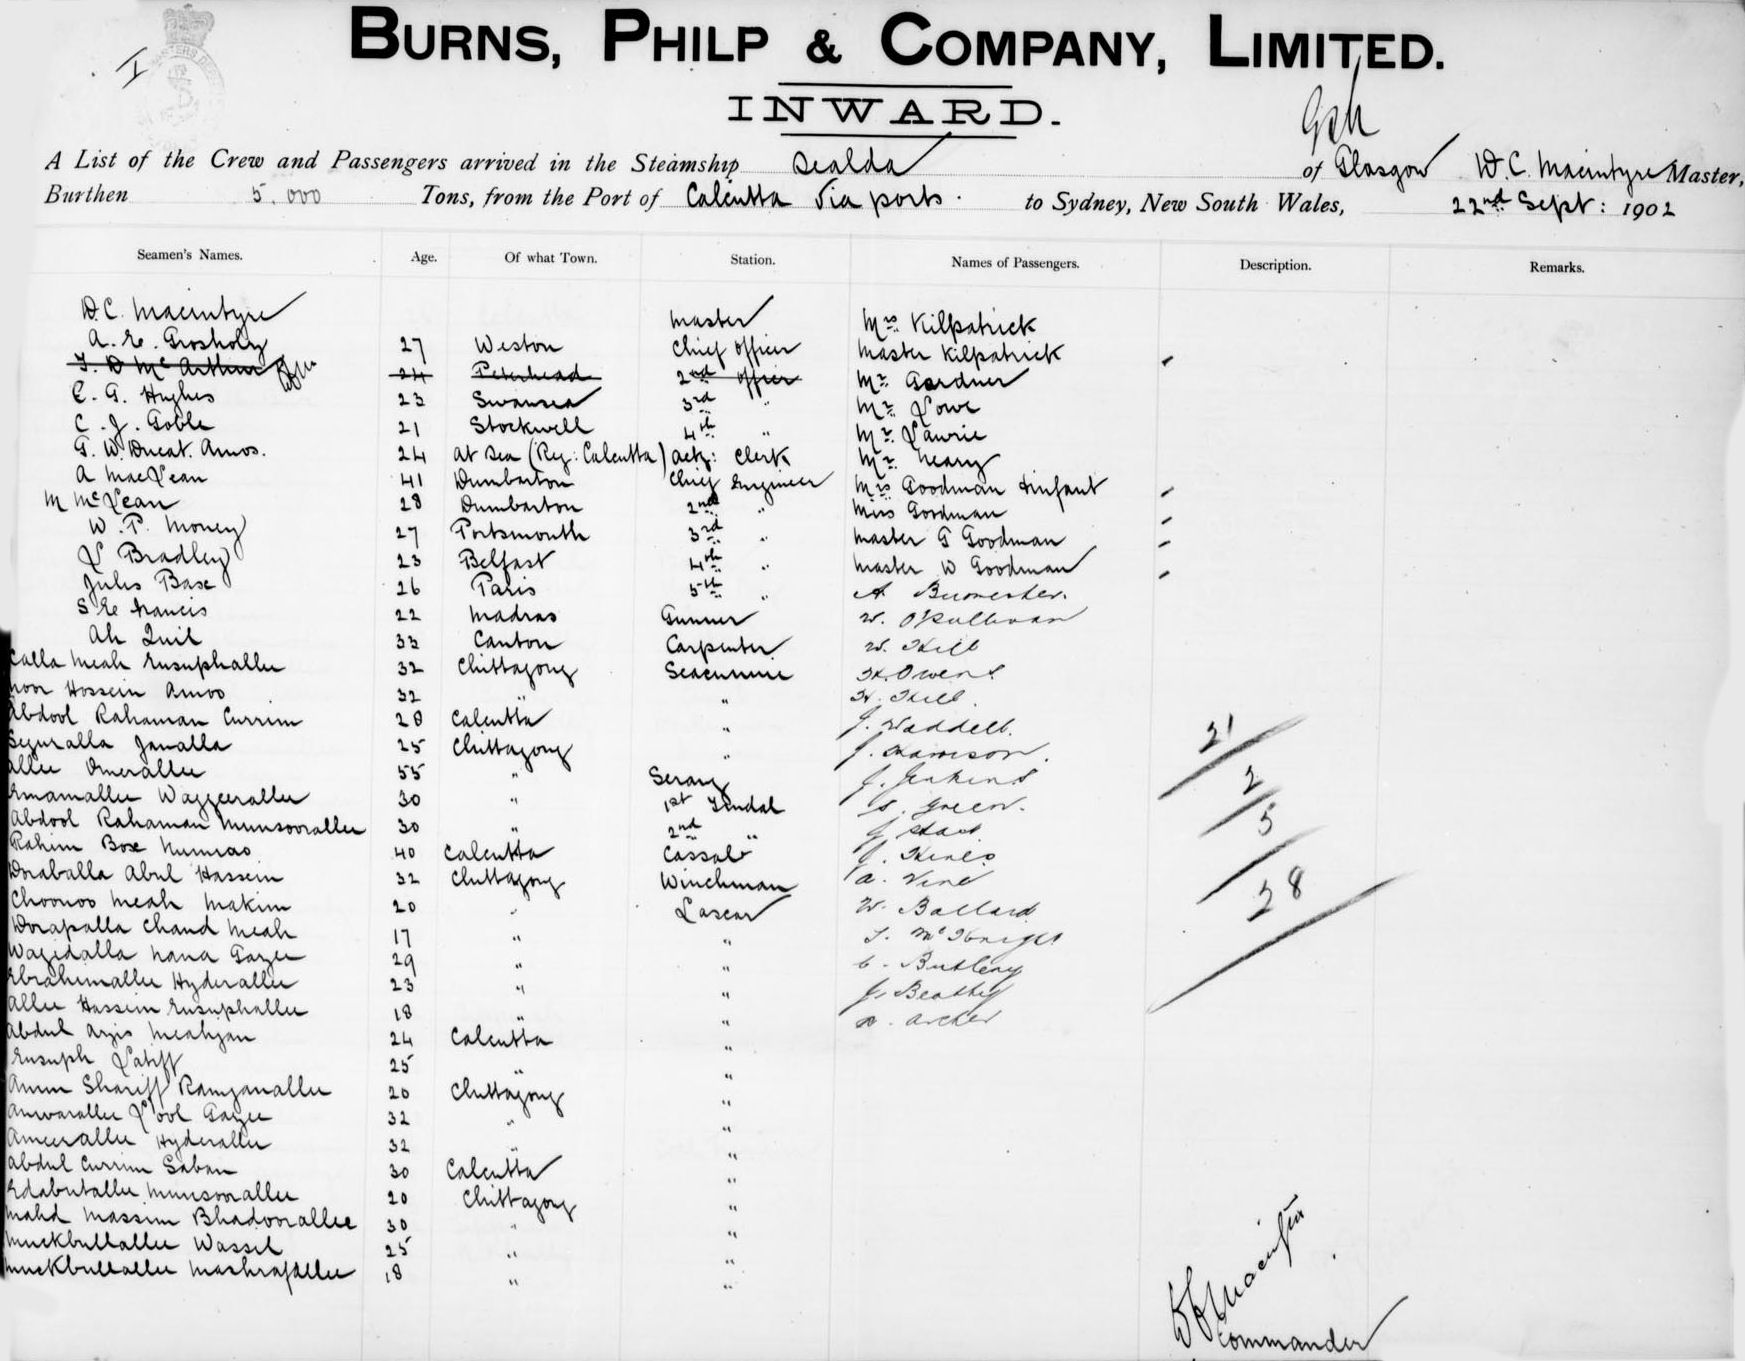 I
BURNS, PHILP & COMPANY, LIMITED.
INWARD.
A List of the Crew and Passengers arrived in the Steamship Sealda of Glasgow D.C. Macintyre Master,
Burthen 5.000 Tons, from the Port of Calcutta Via ports. to Sydney, New South Wales, 22nd Sept: 1902
Seamen's Names. Age. Of what Town. Station. Names of Passengers. Description. Remarks.
D.C. Macintyre Master Mrs Kilpatrick
A. E. 27 Weston Chief Officer Master Kilpatrick
J. D McArthur 24 Peterhead 2nd Officer Mr Gardner
E. G. Hughes 23 Swansea 3rd " Mr Lowe
C. J. Goble 21 Stockwell 4th " Mr Laurie
G. W. Amos. 24 at Sea (Reg: Calcutta) actg: Clerk Mr Neary
A MacLean 41 Dumbarton Chief Engineer Mrs Goodman & Infant
M McLean 28 Dumbarton 2nd " Miss Goodman
W. P. Money 27 Portsmouth 3rd " Master G Goodman
L Bradley 23 Belfast 4th " Master W Goodman
Jules Base 26 Paris 5th " A Burmester.
S E Francis 22 Madras Gunner W. O'Sullivan
Ah Quil 33 Canton Carpenter W. Hill
Calla Meah Eusuphallee 32 Chittagong Seacunnie H. Owens
Noor Hossein Amoo 32 " " H. Hill.
Abdool Rahaman Currim 28 Calcutta " J. Waddell.
Syuralla Janalla 25 Chittagong " J. Harrison.
Allee Omerallee 55 " Serang J. Jenkins
Emamallee Wazeerallee 30 " 1st Tindal S. Green.
Abdool Rahaman Munsoorallee 30 " 2nd " J
Rahim Box 40 Calcutta Cassab J.
Doraballa Abul Hassein 32 Chittagong Winchman A. Vine
Choonoo Meah Makim 20 " Lascar W. Ballard
Dorapalla Chand Meah 17 " " J.
Wazidalla Nana Gazee 29 " " C.
Ebrahimallee Hyderallee 23 " " J. Beathy
Allee Hassein Eusuphallee 18 " " A. Archer
Abdul Azis Meahjan 24 Calcutta "
Eusuph Latiff 25 " "
Amin Shariff Ramzanallee 20 Chittagong "
Anwarallee Lool Gazee 32 " "
Ameerallee Hyderallee 32 " "
Abdul Currim Soban 30 Calcutta "
Edabutallee Munsoorallee 20 Chittagong "
Mahd Massim Bhadoorallee 30 " "
Muckbullallee Wassil 25 " "
Muckbullallee Mashrafallee 18 " "
21
2
5
28
D C Macintyre
Commander